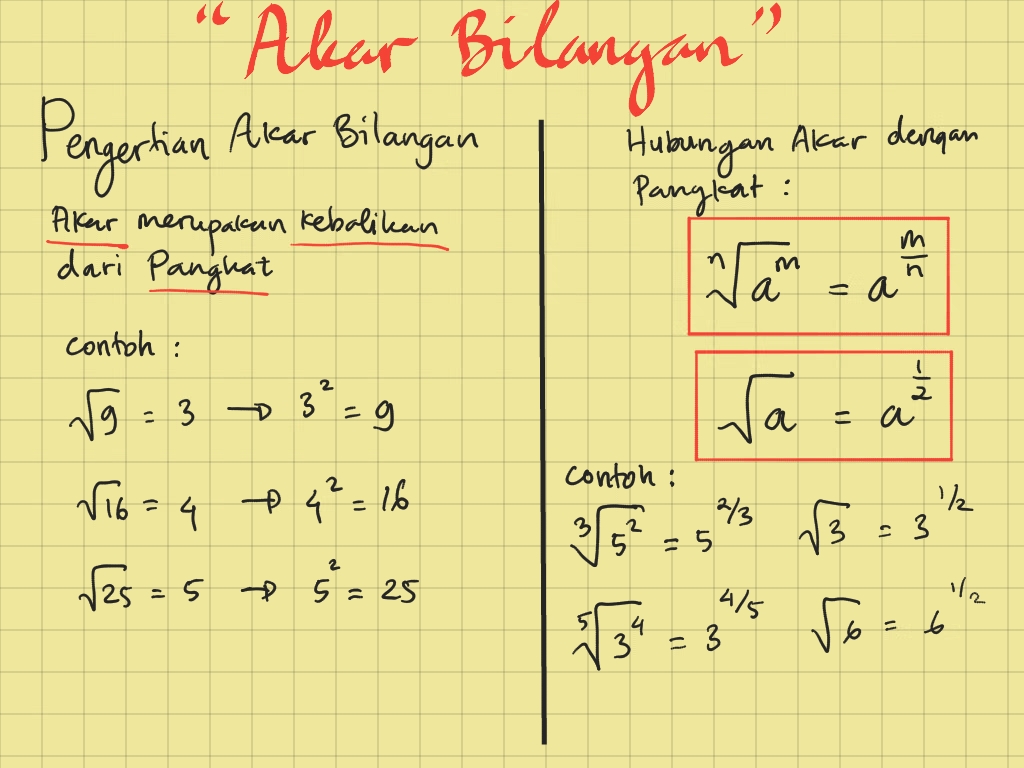 “Akar Bilangan”
Pengertian Akar Bilangan
Akar merupakan kebalikan
dari Pangkat
Contoh :
√9 = 3 → 3² = 9
√16 = 4 → 4² = 16
√25 = 5 → 5² = 25
Hubungan Akar dengan
Pangkat :
ⁿ√aᵐ = a^(m/n)
√a = a^(1/2)
Contoh :
³√5² = 5^(2/3) √3 = 3^(1/2)
⁵√3⁴ = 3^(4/5) √6 = 6^(1/2)